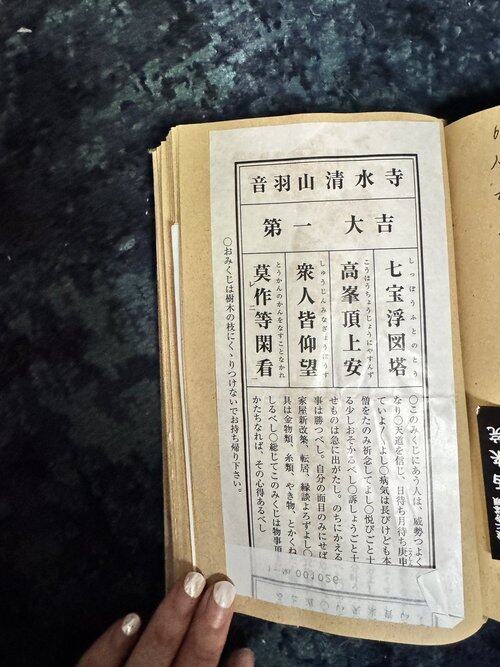 音羽山清水寺
第一大吉
七宝浮図塔
しっぽうふとのとう
高峯頂上安
こうほうちょうじょうにやすんず
衆人皆仰望
しゅうじんみなぎょうにうす
莫作等閑看
とうかんのかんをなすことなかれ
〇このみくじにあう人は、威勢つよく
なり〇天道を信じ、日待ち月待ち庚申
ていよ〳〵よし〇病気は長びけども本
僧をたのみ祈念してよし〇悦びごと十
る少しおそかるべし〇訴しょうごと十
せものは急に出がたし。のちにかえる
事は勝つべし。自分の面目のみにせば
家屋新改築、転居、縁談よろずよし〇
具は金物類、糸類、やき物、とかくね
しるべし〇総じてこのみくじは物事頂
かたちなれば、その心得あるべし
〇おみくじは樹木の枝にくゝりつけないでお持ち帰り下さい。
001026